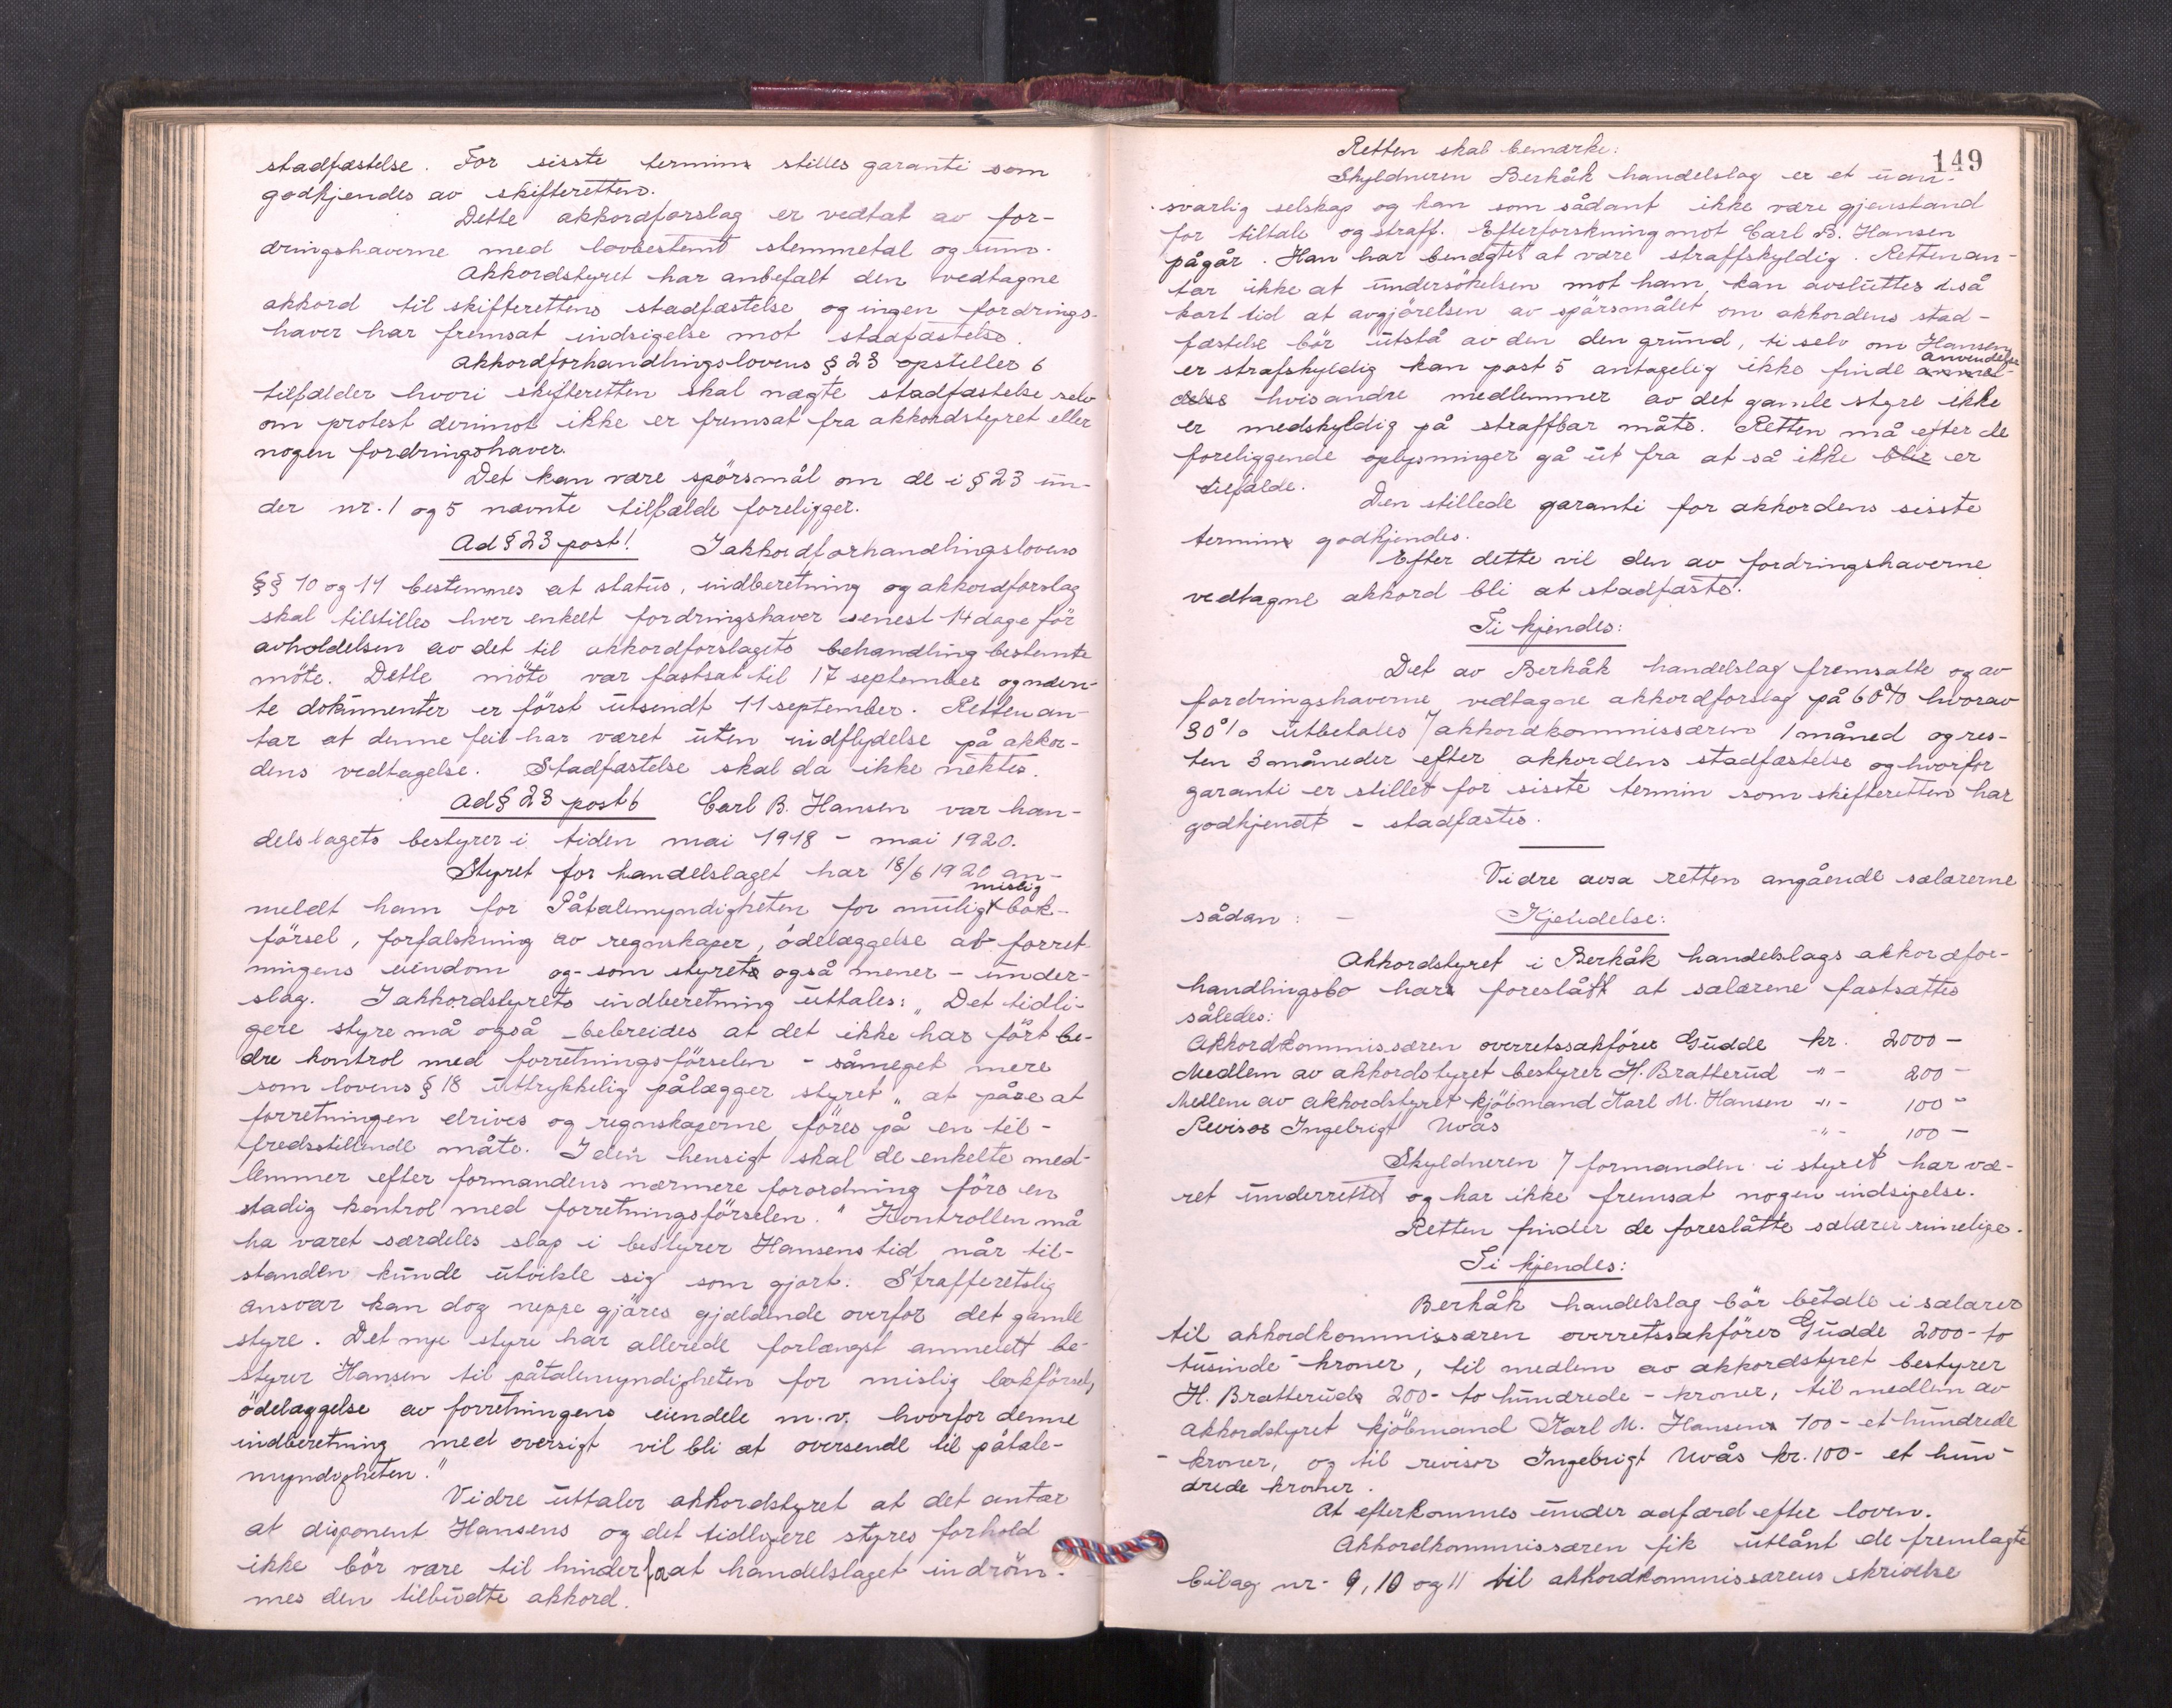 stadfæstelse. For sisste termin stilles garanti som
godkjendes av skifteretten.
Dette akkordforslag er vedtat av for-
dringshaverne med lovbestemt stemmetal og sum.
Akkordstyret har anbefalt den vedtagne
akkord til skifterettens stadfæstelse og ingen fordrings-
haver har fremsat indsigelse mot stadfæstelse.
Akkordforhandlingslovens § 23 opstiller 6
tilfælder hvori skifteretten skal nægte stadfæstelse selv
om protest derimot ikke er fremsat fra akkordstyret eller
nogen fordringshaver.
Det kan være spörsmål om de i § 23 un-
der nr. 1 og 5 nævnte tilfælde foreligger.
Ad § 23 post 1 I akkordforhandlingslovens
§§ 10 og 14 bestemmes at status, indberetning og akkordforslag
skal tilstilles hver enkelt fordringshaver senest 14 dage för
avholdelsen av det til akkordforslagets behandling bestemte
möte. Dette möte var fastsat til 17 september og nævn-
te dokumenter er först utsendt 11 september. Retten an-
tar at denne feil har været uten indflydelse på akkor-
dens vedtagelse. Stadfæstelse skal da ikke nektes.
Ad § 23 post 6 Carl B. Hansen var han-
delslagets bestyrer i tiden mai 1918 - mai 1920.
Styret for handelslaget har 18/6 1920 an-
mislig
meldt ham for Påtalemyndigheten for mulig bok-
försel, forfalskning av regnskaper, ödelæggelse av forret-
ningens eiendom og - som styret også mener - under-
slag. I akkordstyrets indberetning uttales: "Det tidli-
gere styre må også bebreides at det ikke har fört be-
dre kontrol med forretningsförselen - såmeget mere
som lovens § 18 uttrykkelig pålægger styret "at påse at
forretningen drives og regnskaperne föres på en til-
fredsstillende måte. I den hensigt skal de enkelte med-
lemmer efter formandens nærmere forordning före en
stadig kontrol med forretningsförselen." Kontrollen må
ha været særdeles slap i bestyrer Hansens tid når til-
standen kunde utvikle sig som gjort. Strafferetslig
ansvar kan dog neppe gjöres gjældende overfor det gamle
styre. Det nye styre har allerede forlængst anmeldt be-
styrer Hansen til påtalemyndigheten for mislig bokförsel,
ödelæggelse av forretningens eiendele m.v. hvorfor denne
indberetning med oversigt vil bli at oversende til påtale-
myndigheten."
Vidre uttaler akkordstyret at det antar
at disponent Hansens og det tidligere styres forhold
ikke bör være til hinder for at handelslaget indröm-
mes den tilbudte akkord.
149
Retten skal bemærke:
Skyldneren Berkåk handelslag er et uan-
svarlig selskap og kan som sådant ikke være gjenstand
for tiltale og straff. Efterforskning mot Carl B. Hansen
pågår. Han har benægtet at være straffskyldig. Retten an-
tar ikke at undersökelsen mot ham kan avsluttes i så
kort tid at avgjörelsen av spörsmålet om akkordens stad-
fæstelse bör utstå av den den grund, ti selv om Hansen
anvendelse
er strafskyldig kan post 5 antagelig ikke finde
hvis andre medlemmer av det gamle styre ikke
er medskyldig på straffbar måte. Retten må efter de
foreliggende oplysninger gå ut fra at så ikke blir er
tilfælde.
Den stillede garanti for akkordens sisste
termin godkjendes.
Efter dette vil den av fordringshaverne
vedtagne akkord bli at stadfæste.
Ti kjendes:
Det av Berkåk handelslag fremsatte og av
fordringshaverne vedtagne akkordforslag på 60% hvorav
30% utbetales / akkordkommissæren 1 måned og res-
ten 3 måneder efter akkordens stadfæstelse og hvorfor
garanti er stillet for sisste termin som skifteretten har
godkjendt - stadfæstes.
Vidre avsa retten angående salærerne
sådan: -
Kjendelse:
Akkordstyret i Berkåk handelslags akkordfor-
handlingsbo har foreslått at salærene fastsættes
således:
Akkordkommissæren overretssakförer Gudde kr. 2000 -
Medlem av akkordstyret bestyrer H. Bratterud -"- 200 -
Medlem av akkordstyret kjöbmand Karl M. Hansen -"- 100 -
Revisor Ingebrigt Uvås -"- 100 -
Skyldneren / formanden i styret har væ-
ret underrettet og har ikke fremsat nogen indsigelse.
Retten finder de foreslåtte salærer rimelige.
Ti kjendes:
Berkåk handelslag bör betale i salærer
til akkordkommissæren overretssakförer Gudde 2000 - to
tusinde - kroner, til medlem av akkordstyret bestyrer
H. Bratterud 200 - to hundrede - kroner, til medlem av
akkordstyret kjöbmand Karl M. Hansen 100 - et hundrede
- kroner, og til revisor Ingebrigt Uvås kr. 100 - et hun-
drede kroner.
At efterkommes under adfærd efter loven.
Akkordkommissæren fik utlånt de fremlagte
bilag nr. 9, 10 og 11 til akkordkommissærens skrivelse